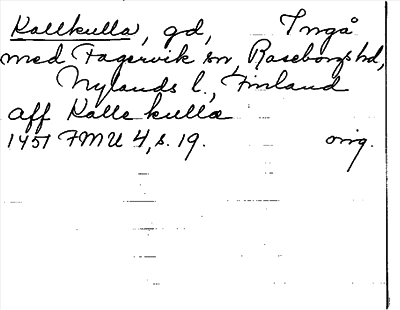 Kallkulla, gd, Ingå
med Fagervik sn, Raseborgs hd,
Nylands l., Finland
aff Kalle kulla
1451 FMU 4, s. 19. orig.